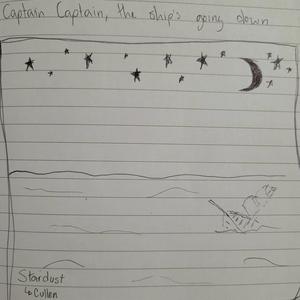 Captain Captain, the ship's going down
Stardust
↳ Cullen